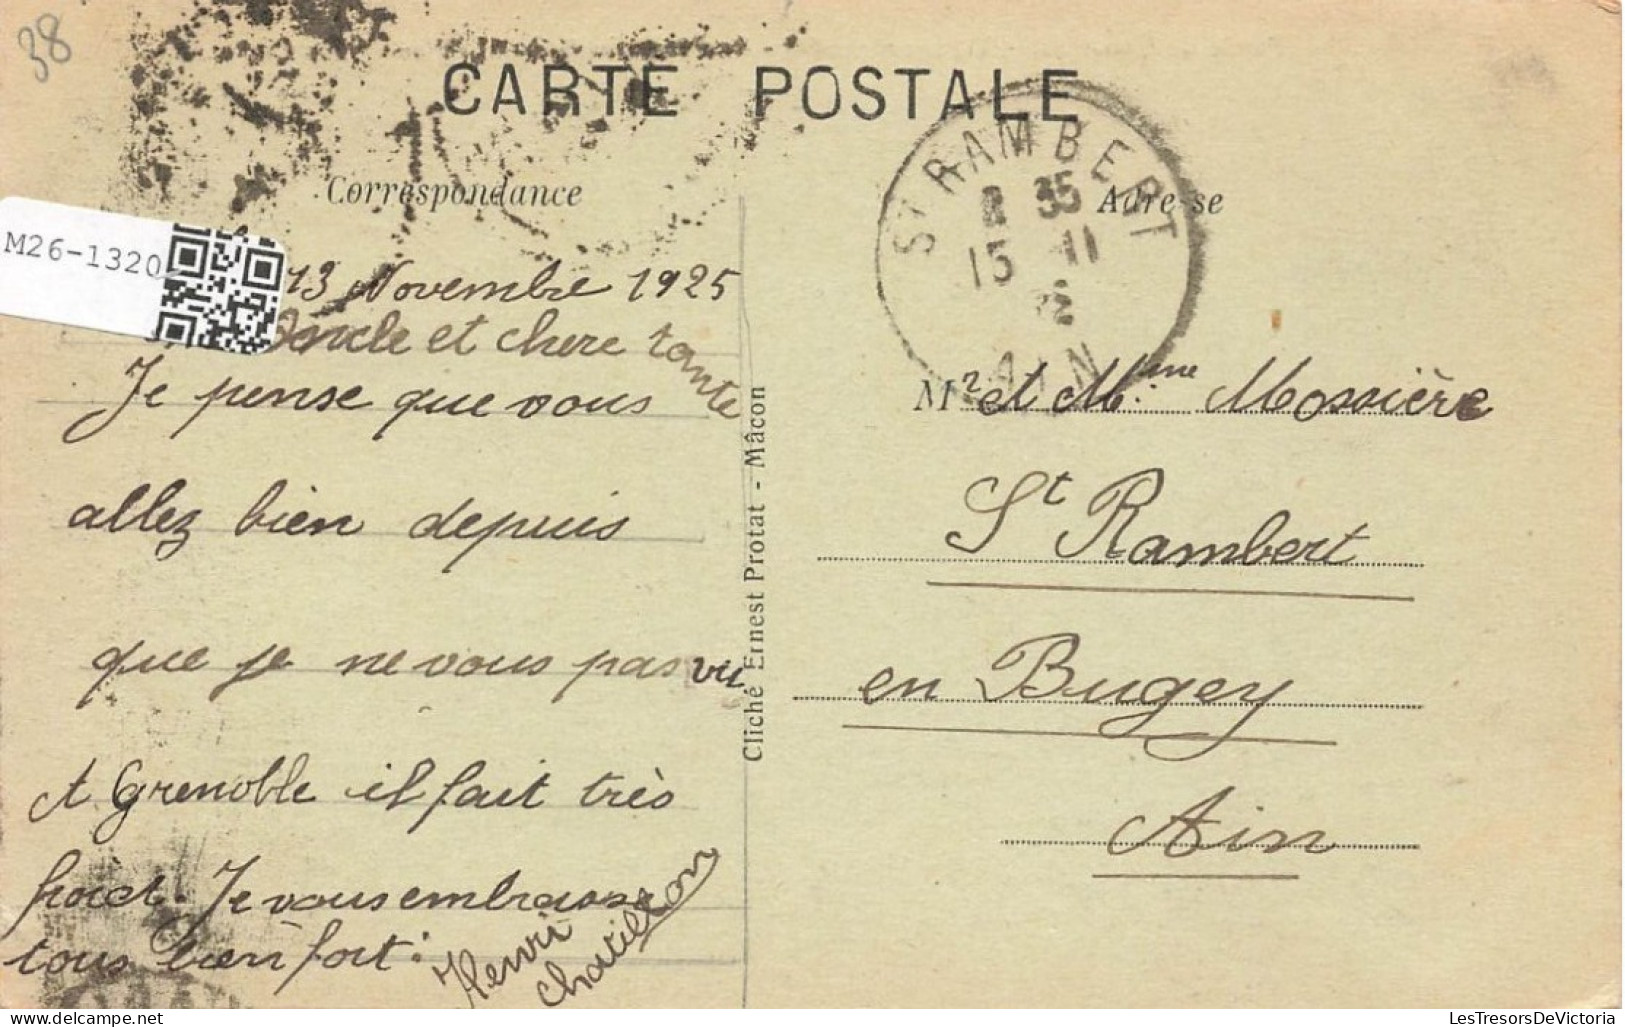 38
CARTE POSTALE
Correspondance
Adresse
M26-1320
ST RAMBERT
8 35
15 11
AIN
13 Novembre 1925
Oncle et chere tante
Je pense que vous
allez bien depuis
que je ne vous pas vu
A Grenoble il fait très
froid. Je vous embrasse
tous bien fort :
Henri
Chatillon
Cliché Ernest Protat - Mâcon
Mr et M.me Mossière
St Rambert
en Bugey
Ain
LesTresorsDeVictoria
delcampe.net